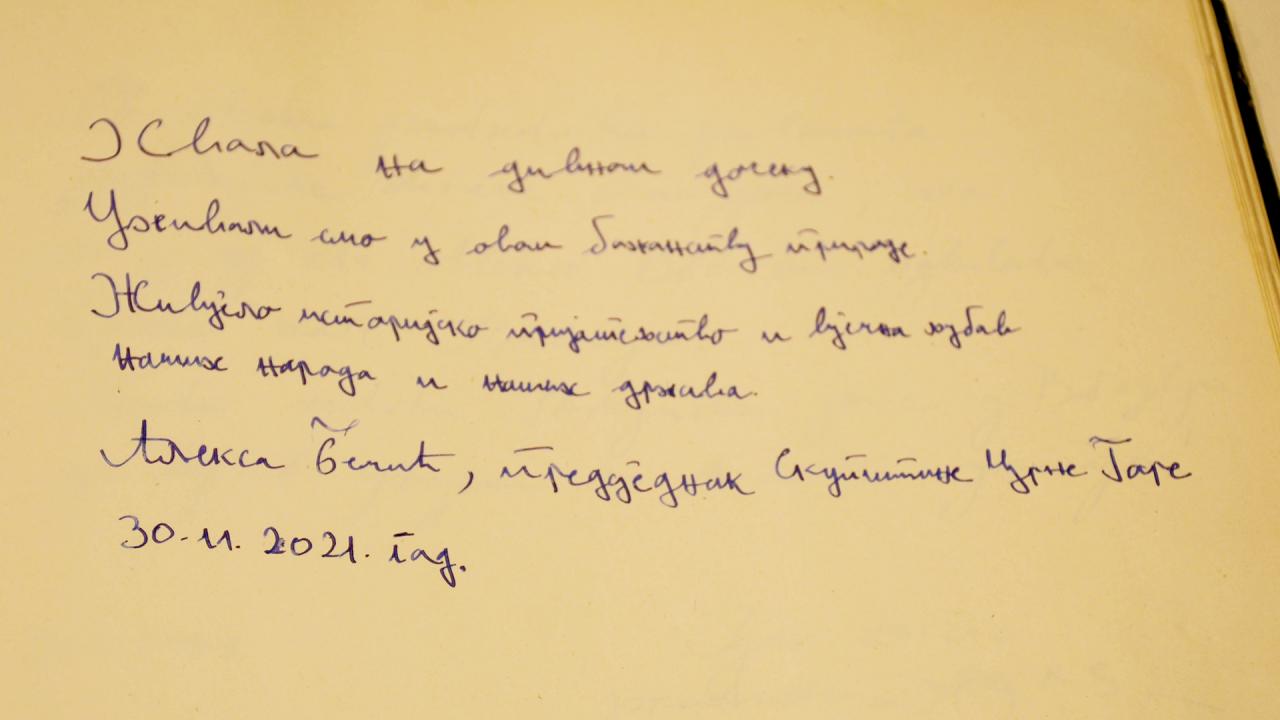 Хвала на дивном дочеку.
Уживали смо у овом божанству природе.
Живјело историјско пријатељство и вјечна љубав
наших народа и наших држава.
Алекса Бечић, предсједник Скупштине Црне Горе
30.11.2021. год.